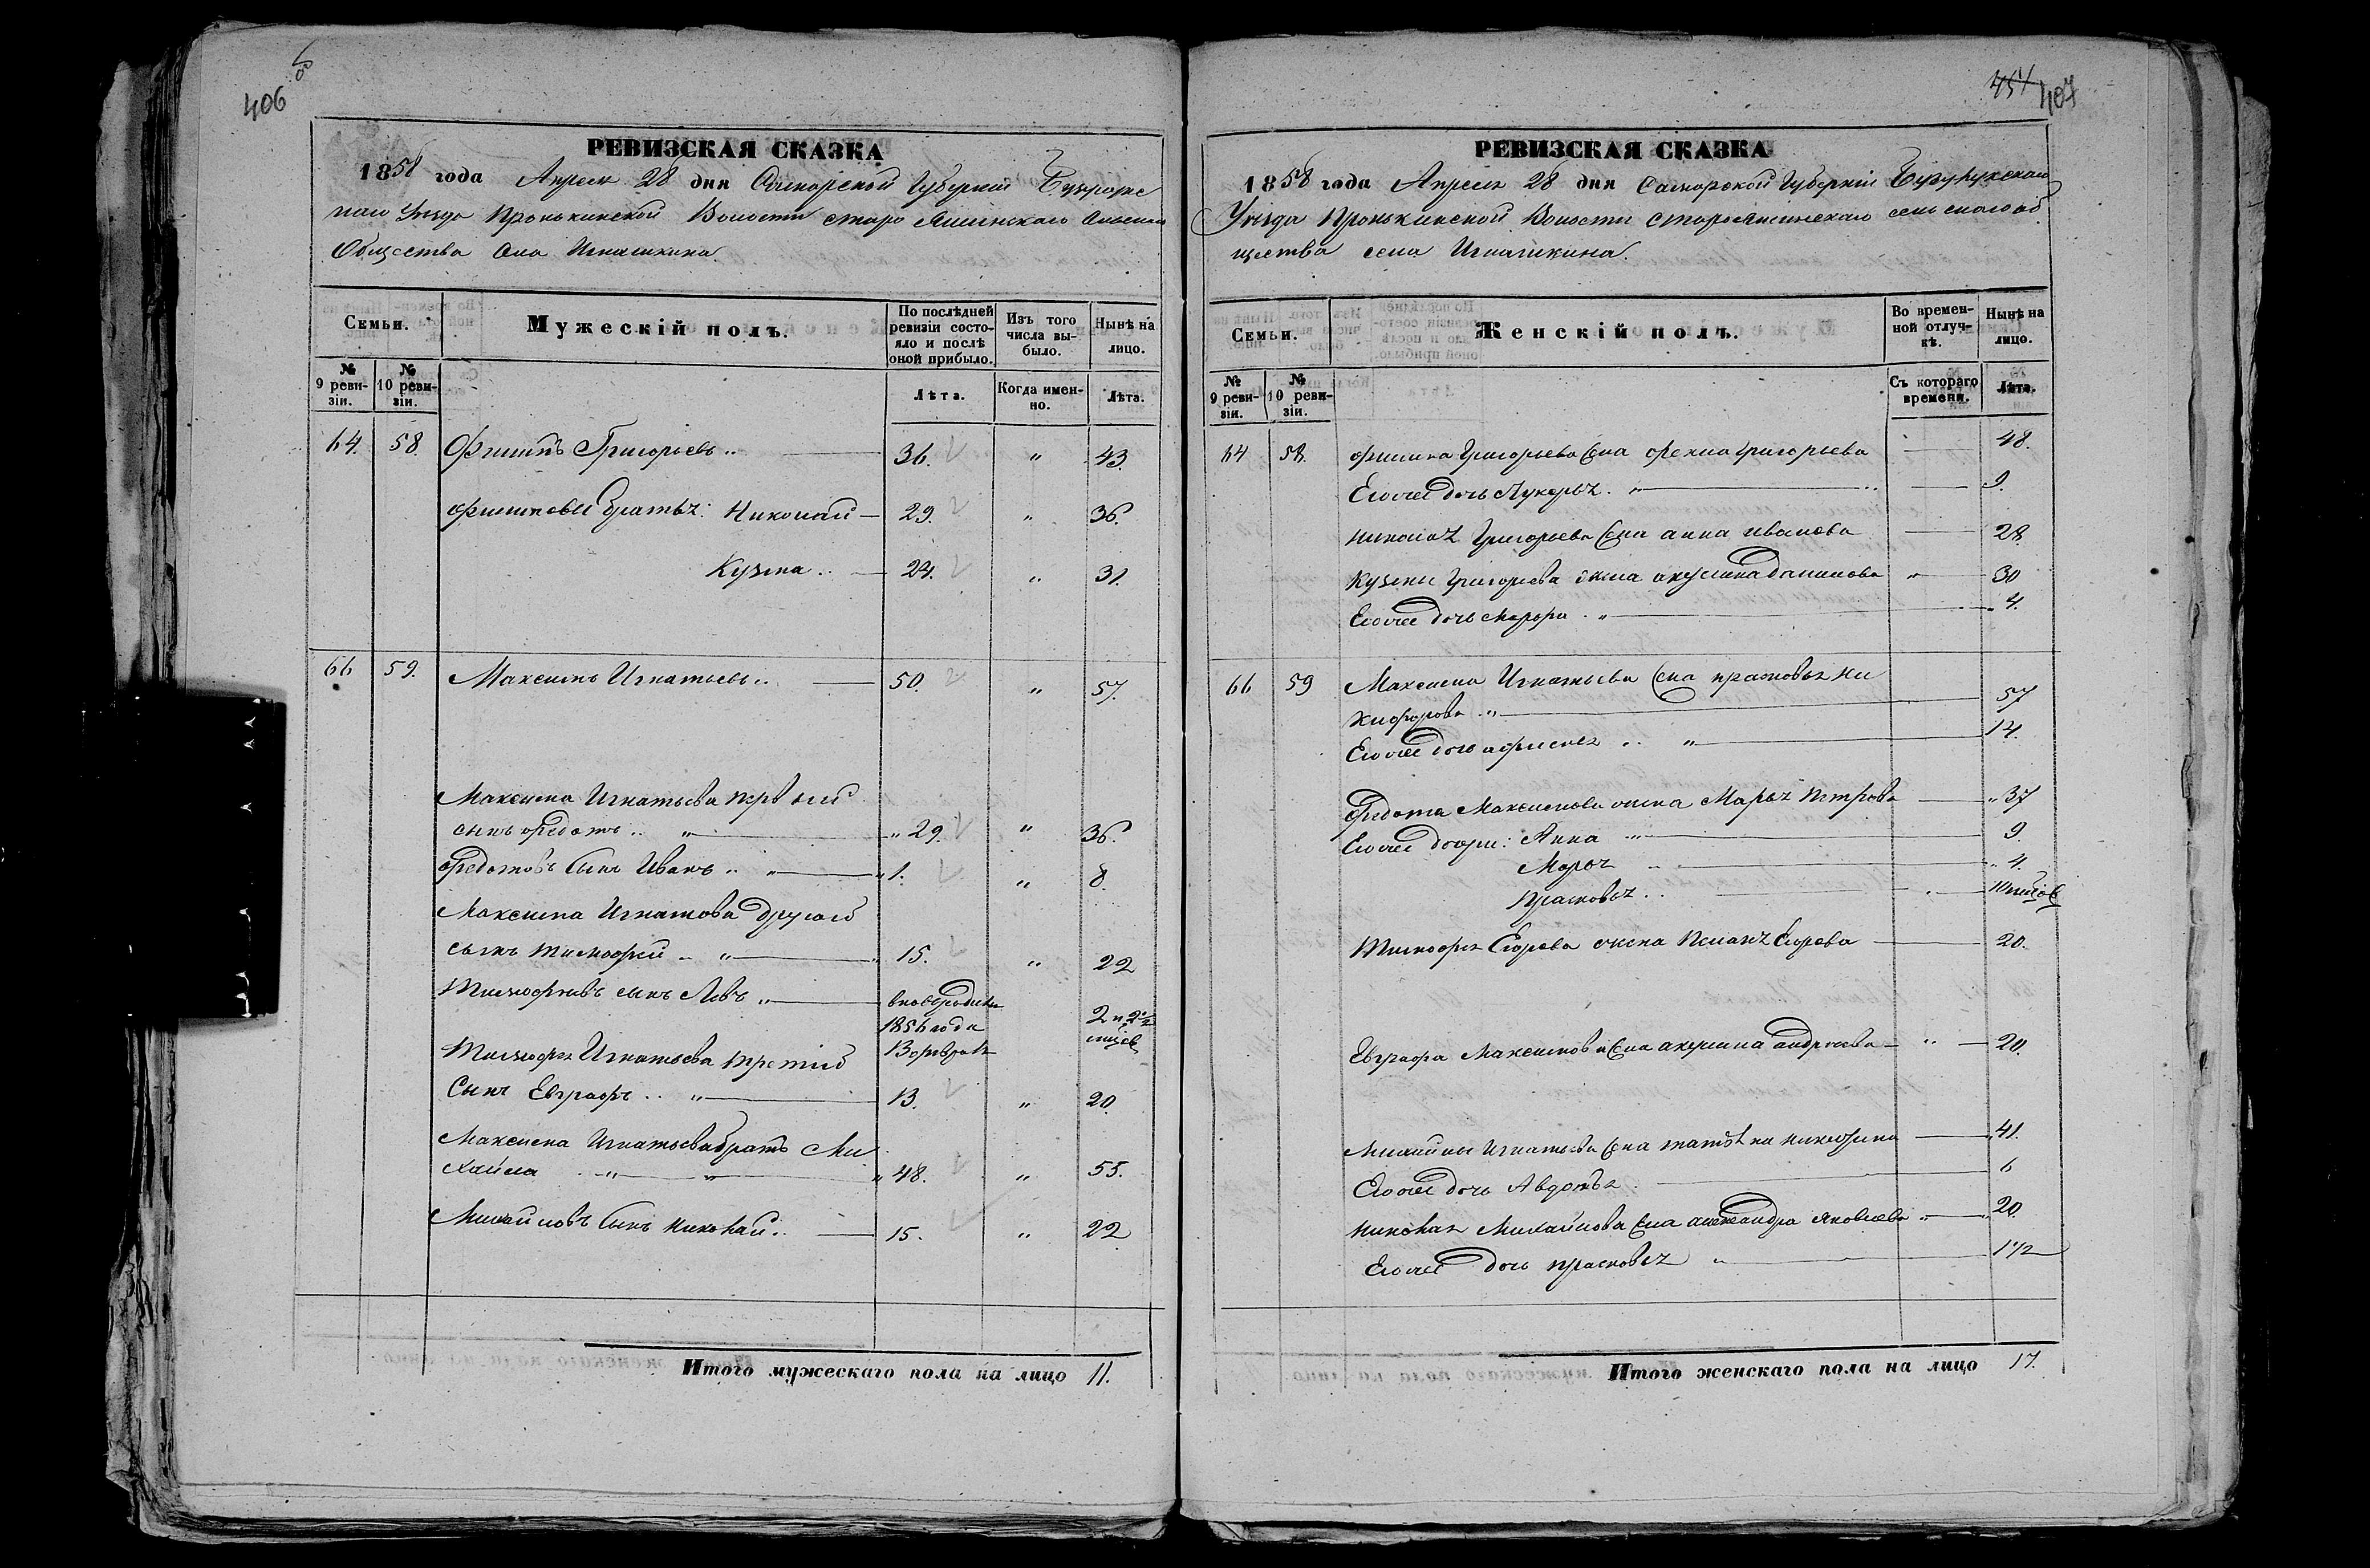 406
РЕВИЗСКАЯ СКАЗКА
1858 года Апреля 28 дня Самарской Губернии
Уезда Пронькинской Волости старо Яшинскаго
Общества села Игнашкина
Семьи.
Мужескій полъ.
По послѣдней ревизіи состояло и послѣ оной прибыло.
Изъ того числа выбыло.
Нынѣ на лицо.
№ 9 ревизіи.
№ 10 ревизіи.
Лѣта.
Когда именно.
Лѣта.
64. 58. Филипъ Григорьевъ .. 36. " 43.
Филиповы братья: Николай 29. " 36.
Кузма .. 24. " 31.
66 59. Максимъ Игнатьевъ .. 50. " 57.
Максима Игнатьева первый
сынъ Федотъ .. " 29. " 36.
Федотовъ сынъ Иванъ .. " 1. " 8.
Максима Игнатова другой
сынъ Тимофей .. " 15. " 22
Тимофеевъ сынъ Левъ "
1856 года
2 и 2½
Февраля
Тимофея Игнатьева третий
Сынъ Евграфъ .. " 13. " 20.
Максима Игнатьева братъ Ми
хайла " " 48. " 55.
Михайловъ сынъ Николай .. 15. " 22
Итого мужескаго пола на лицо 11.
451 407
РЕВИЗСКАЯ СКАЗКА
1858 года Апреля 28 дня Самарской Губерніи Бузулукскаго
Уезда Пронькинской Волости Старояшинскаго сельскаго об
щества села Игнашкина.
Семьи.
Женскій полъ.
Во временной отлучкѣ.
Нынѣ на лицо.
№ 9 ревизіи.
№ 10 ревизіи.
Съ котораго времени.
Лѣта.
64 58. Филипа Григорьева жена Фекла Григорьева 48.
Его же дочь Лукерья. " 9.
Николая Григорьева жена анна иванова 28.
Кузмы Григорьева жена акулина данилова " 30
Его же дочь " 4.
66 59 Максима Игнатьева жена прасковья Ни
кифорова " 57
Его же дочь .. " 14.
Федота Максимова жена Марья Петрова " 37
Его же дочери: Анна " 9.
Марья .. 4.
Прасковья ..
Тимофея Егорова жена Егорева 20.
Евграфа Максимова жена акулина андреева " 20.
Михайлы Игнатьева жена татьяна 41.
Его же дочь Авдотья. 6
Николая Михайлова жена александра Яковлева " 20.
Его же дочь прасковья " 1½
Итого женскаго пола на лицо 17.